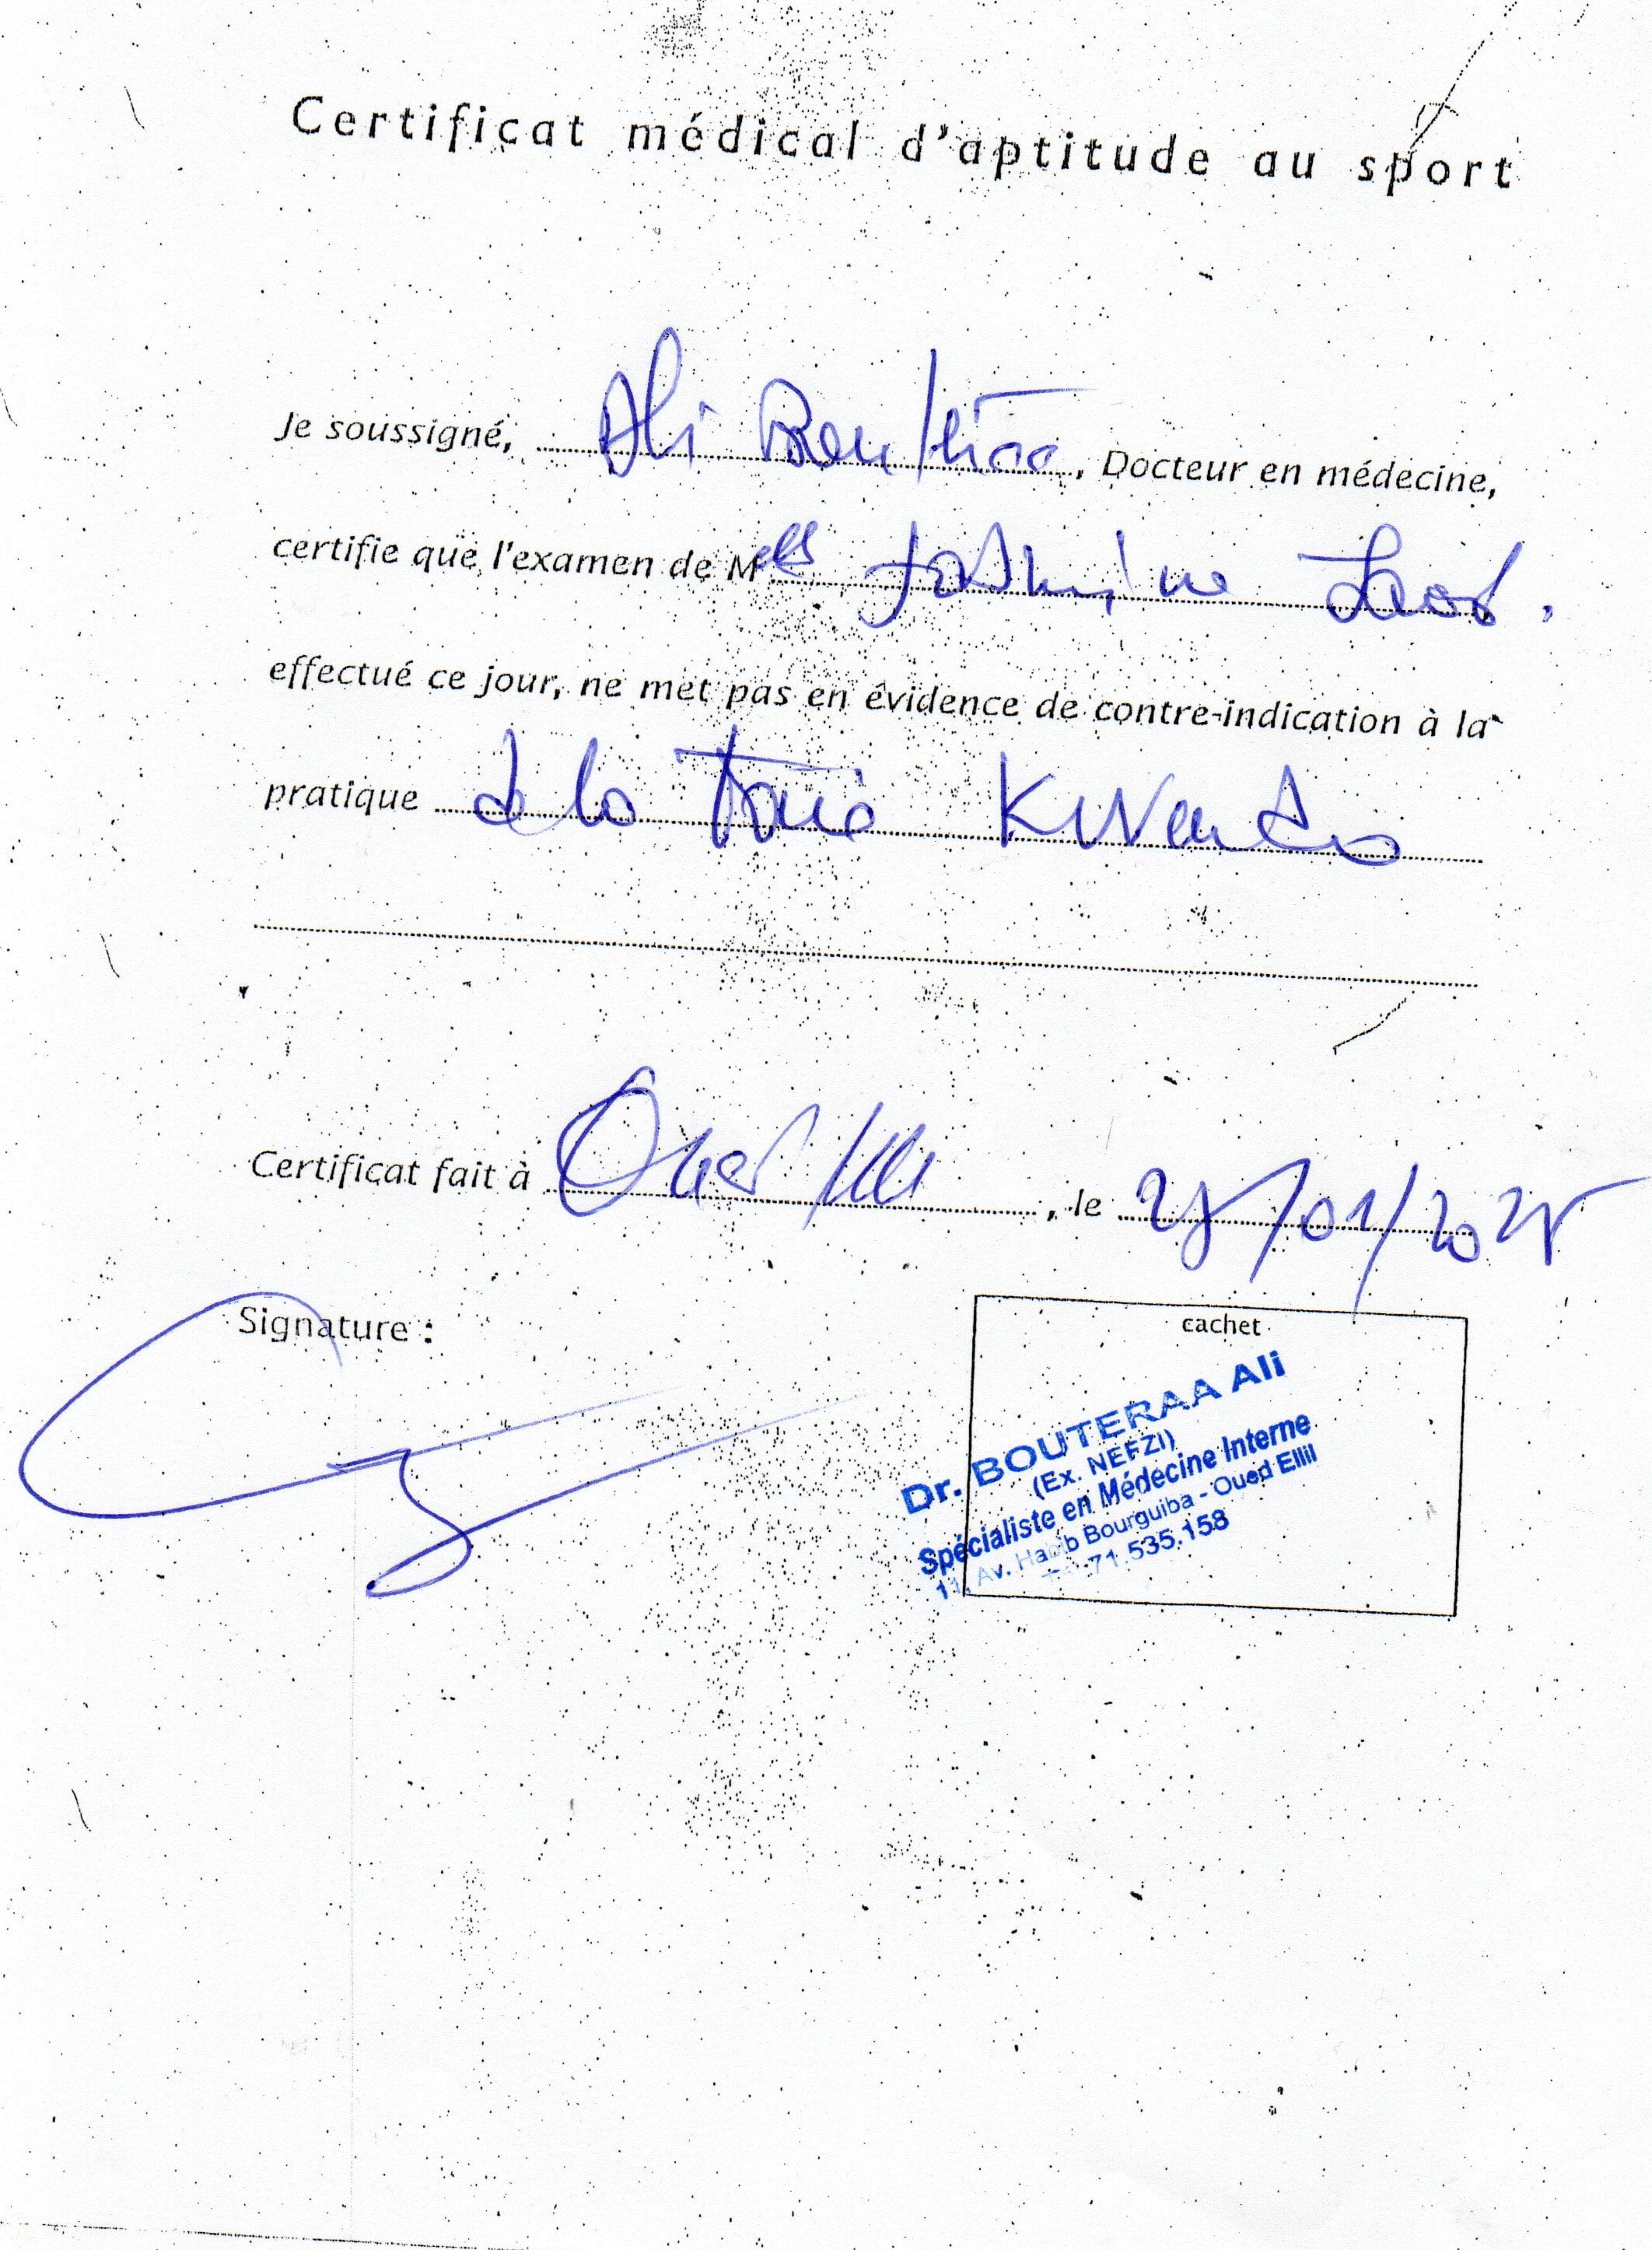 Certificat médical d'aptitude au sport
Je soussigné, Ali Bouteraa, Docteur en médecine,
certifie que l'examen de Mlle
effectué ce jour, ne met pas en évidence de contre-indication à la
pratique de la Kwendo
Certificat fait à Oued Ellil, le /01/2025
Signature :
cachet
Dr. BOUTERAA Ali
(Ex. NEFZI)
Spécialiste en Médecine Interne
11, Av. Habib Bourguiba - Oued Ellil
71.535.158